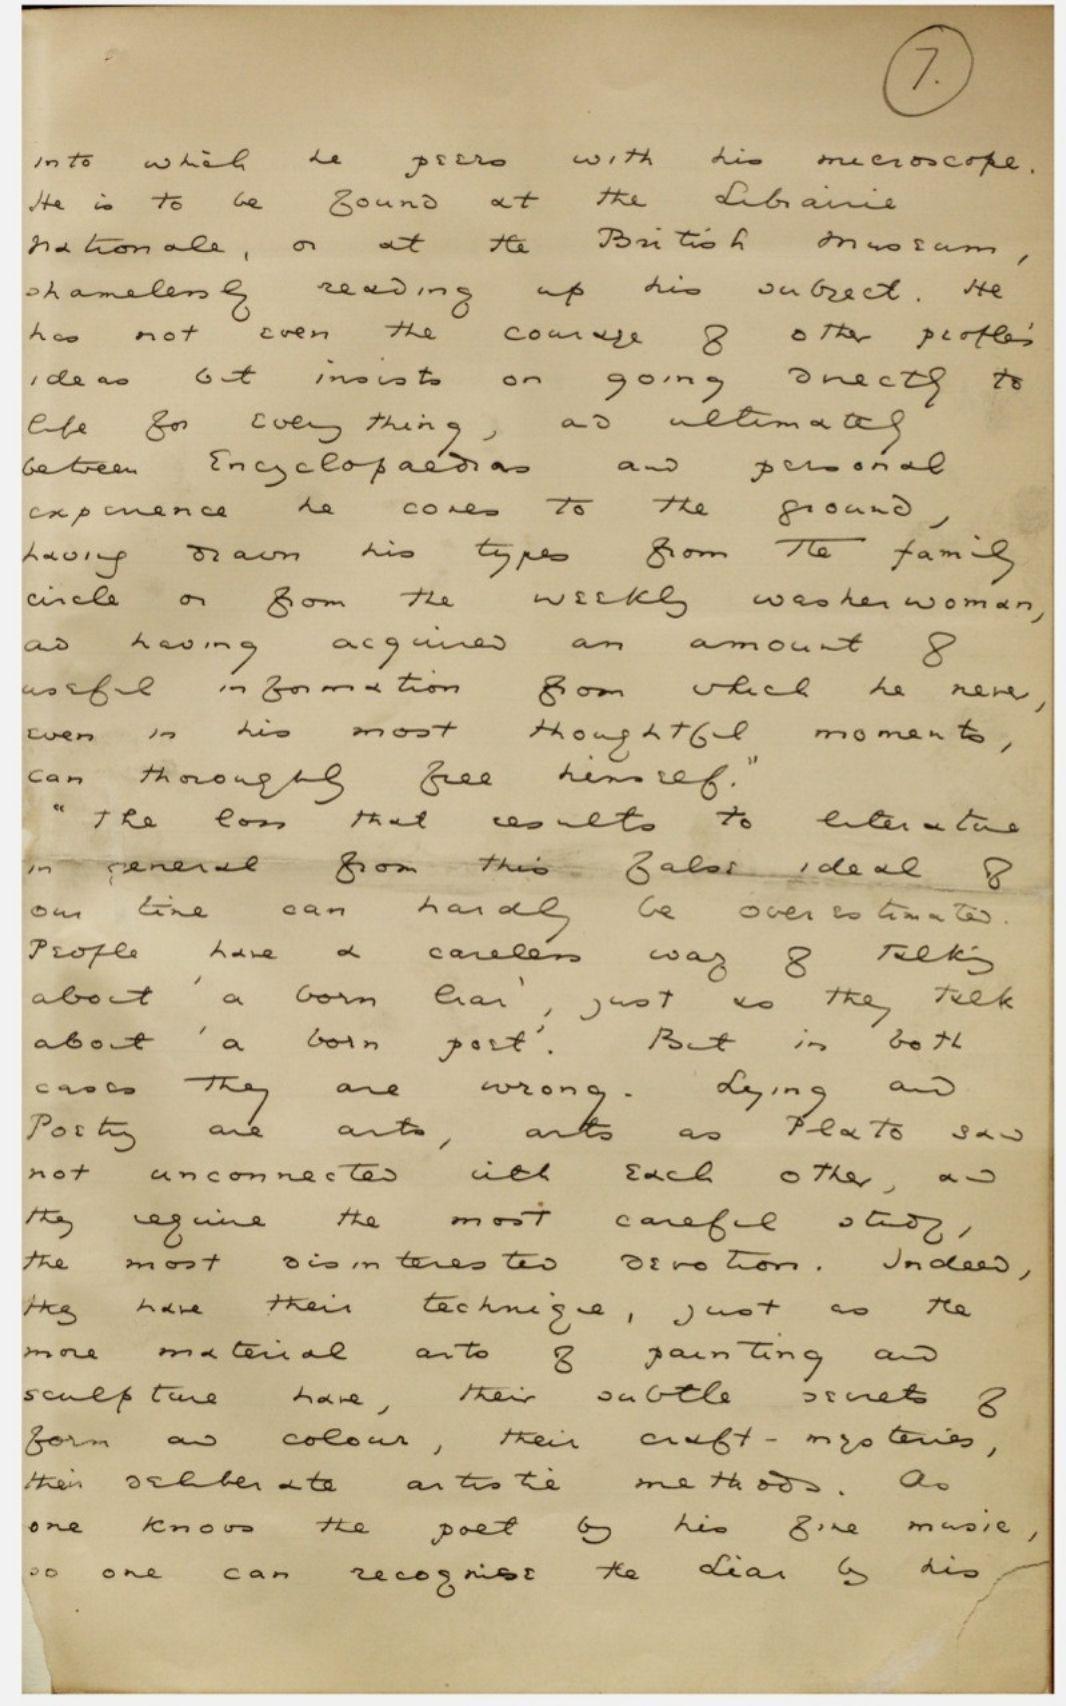 7.
into which he peers with his microscope.
He is to be found at the Librairie
Nationale, or at the British Museum,
shamelessly reading up his subject. He
has not even the courage of other people's
ideas but insists on going directly to
life for everything, and ultimately
between Encyclopaedias and personal
experience he comes to the ground,
having drawn his types from the family
circle or from the weekly washerwoman,
and having acquired an amount of
useful information from which he never,
even in his most thoughtful moments,
can thoroughly free himself."
"The loss that results to literature
in general from this false ideal of
our time can hardly be overestimated.
People have a careless way of talking
about 'a born liar', just as they talk
about 'a born poet'. But in both
cases they are wrong. Lying and
Poetry are arts, arts as Plato saw
not unconnected with each other, and
they require the most careful study,
the most disinterested devotion. Indeed,
they have their technique, just as the
more material arts of painting and
sculpture have, their subtle secrets of
form and colour, their craft-mysteries,
their deliberate artistic methods. As
one knows the poet by his fine music,
so one can recognise the Liar by his